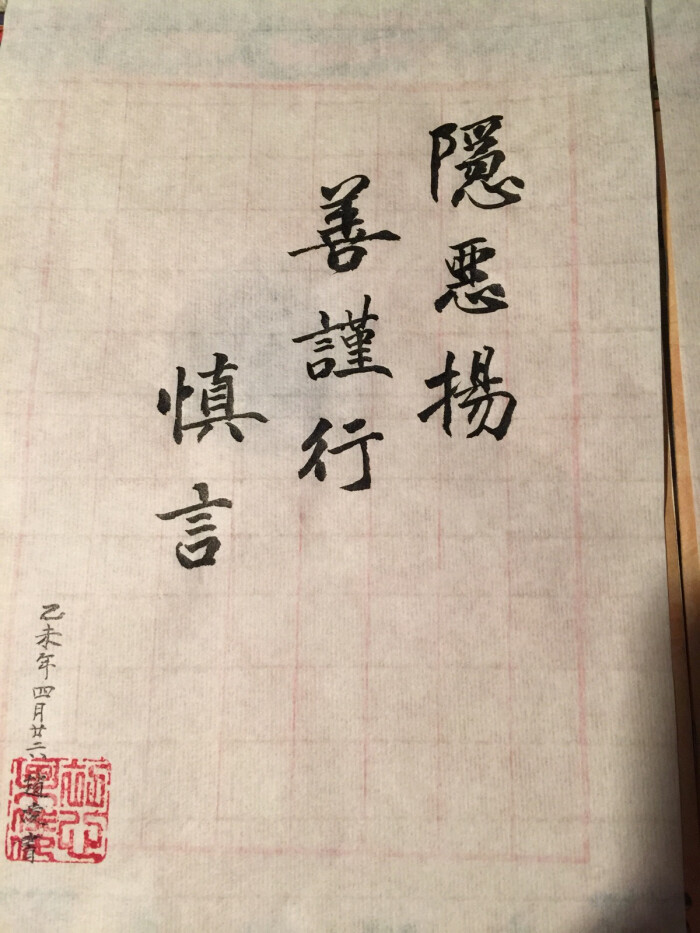 隱惡揚
善謹行
慎言
乙未年四月廿六 趙